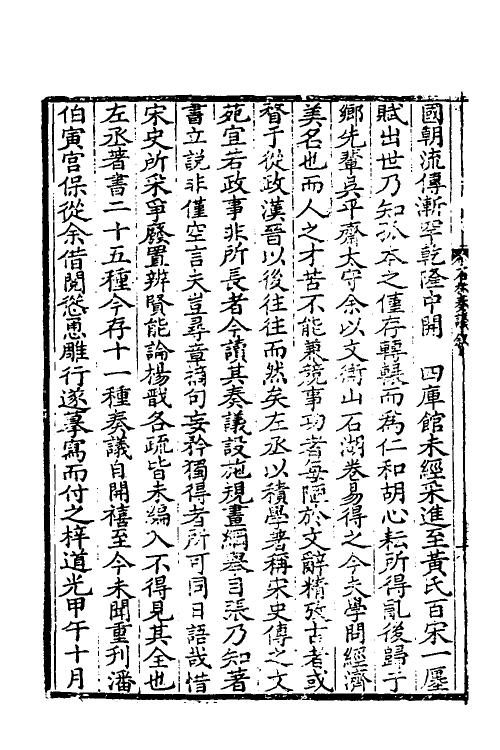 國朝流傳漸罕乾隆中開　四庫館未經采進至黃氏百宋一廛
賦出世乃知孤本之僅存轉輾而為仁和胡心耘所得亂後歸于
鄉先輩吳平齋太守余以文衡山石湖卷易得之今夫學問經濟
美名也而人之才苦不能兼競事功者每陋於文辭精攷古者或
瞀于從政漢晉以後往往而然矣左丞以積學著稱宋史傳之文
苑宜若政事非所長者今讀其奏議設施規畫綱舉目張乃知著
書立說非僅空言夫豈尋章摘句妄矜獨得者所可同日語哉惜
宋史所采爭廢置辨賢能論楊戩各疏皆未編入不得見其全也
左丞著書二十五種今存十一種奏議自開禧至今未聞重刊潘
伯寅宮保從余借閱慫恿雕行遂摹寫而付之梓道光甲午十月